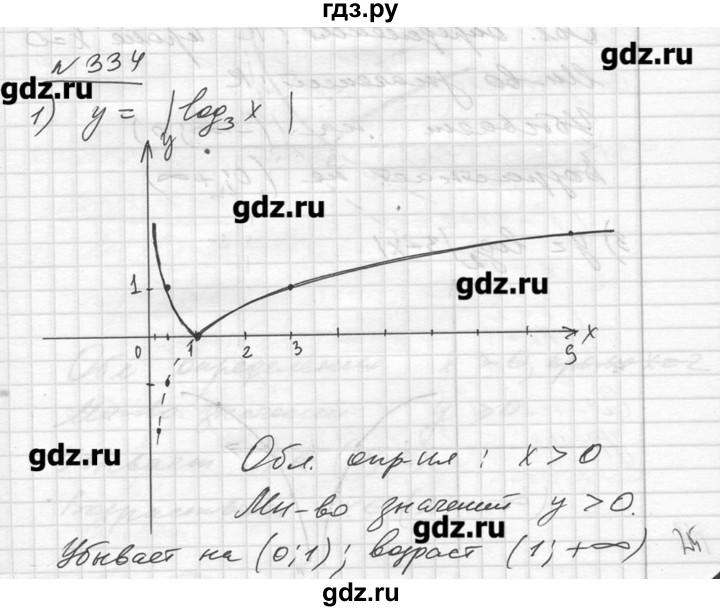 гдз.ру
№ 334
gdz.ru
gdz.ru
1) y = |log₃ x|
y
gdz.ru
1
gdz.ru
0 1 2 3 9 x
gdz.ru
Обл. опр-ия : x > 0
Мн-во значений y > 0.
gdz.ru
Убывает на (0; 1); возраст (1; +∞)
gdz.ru